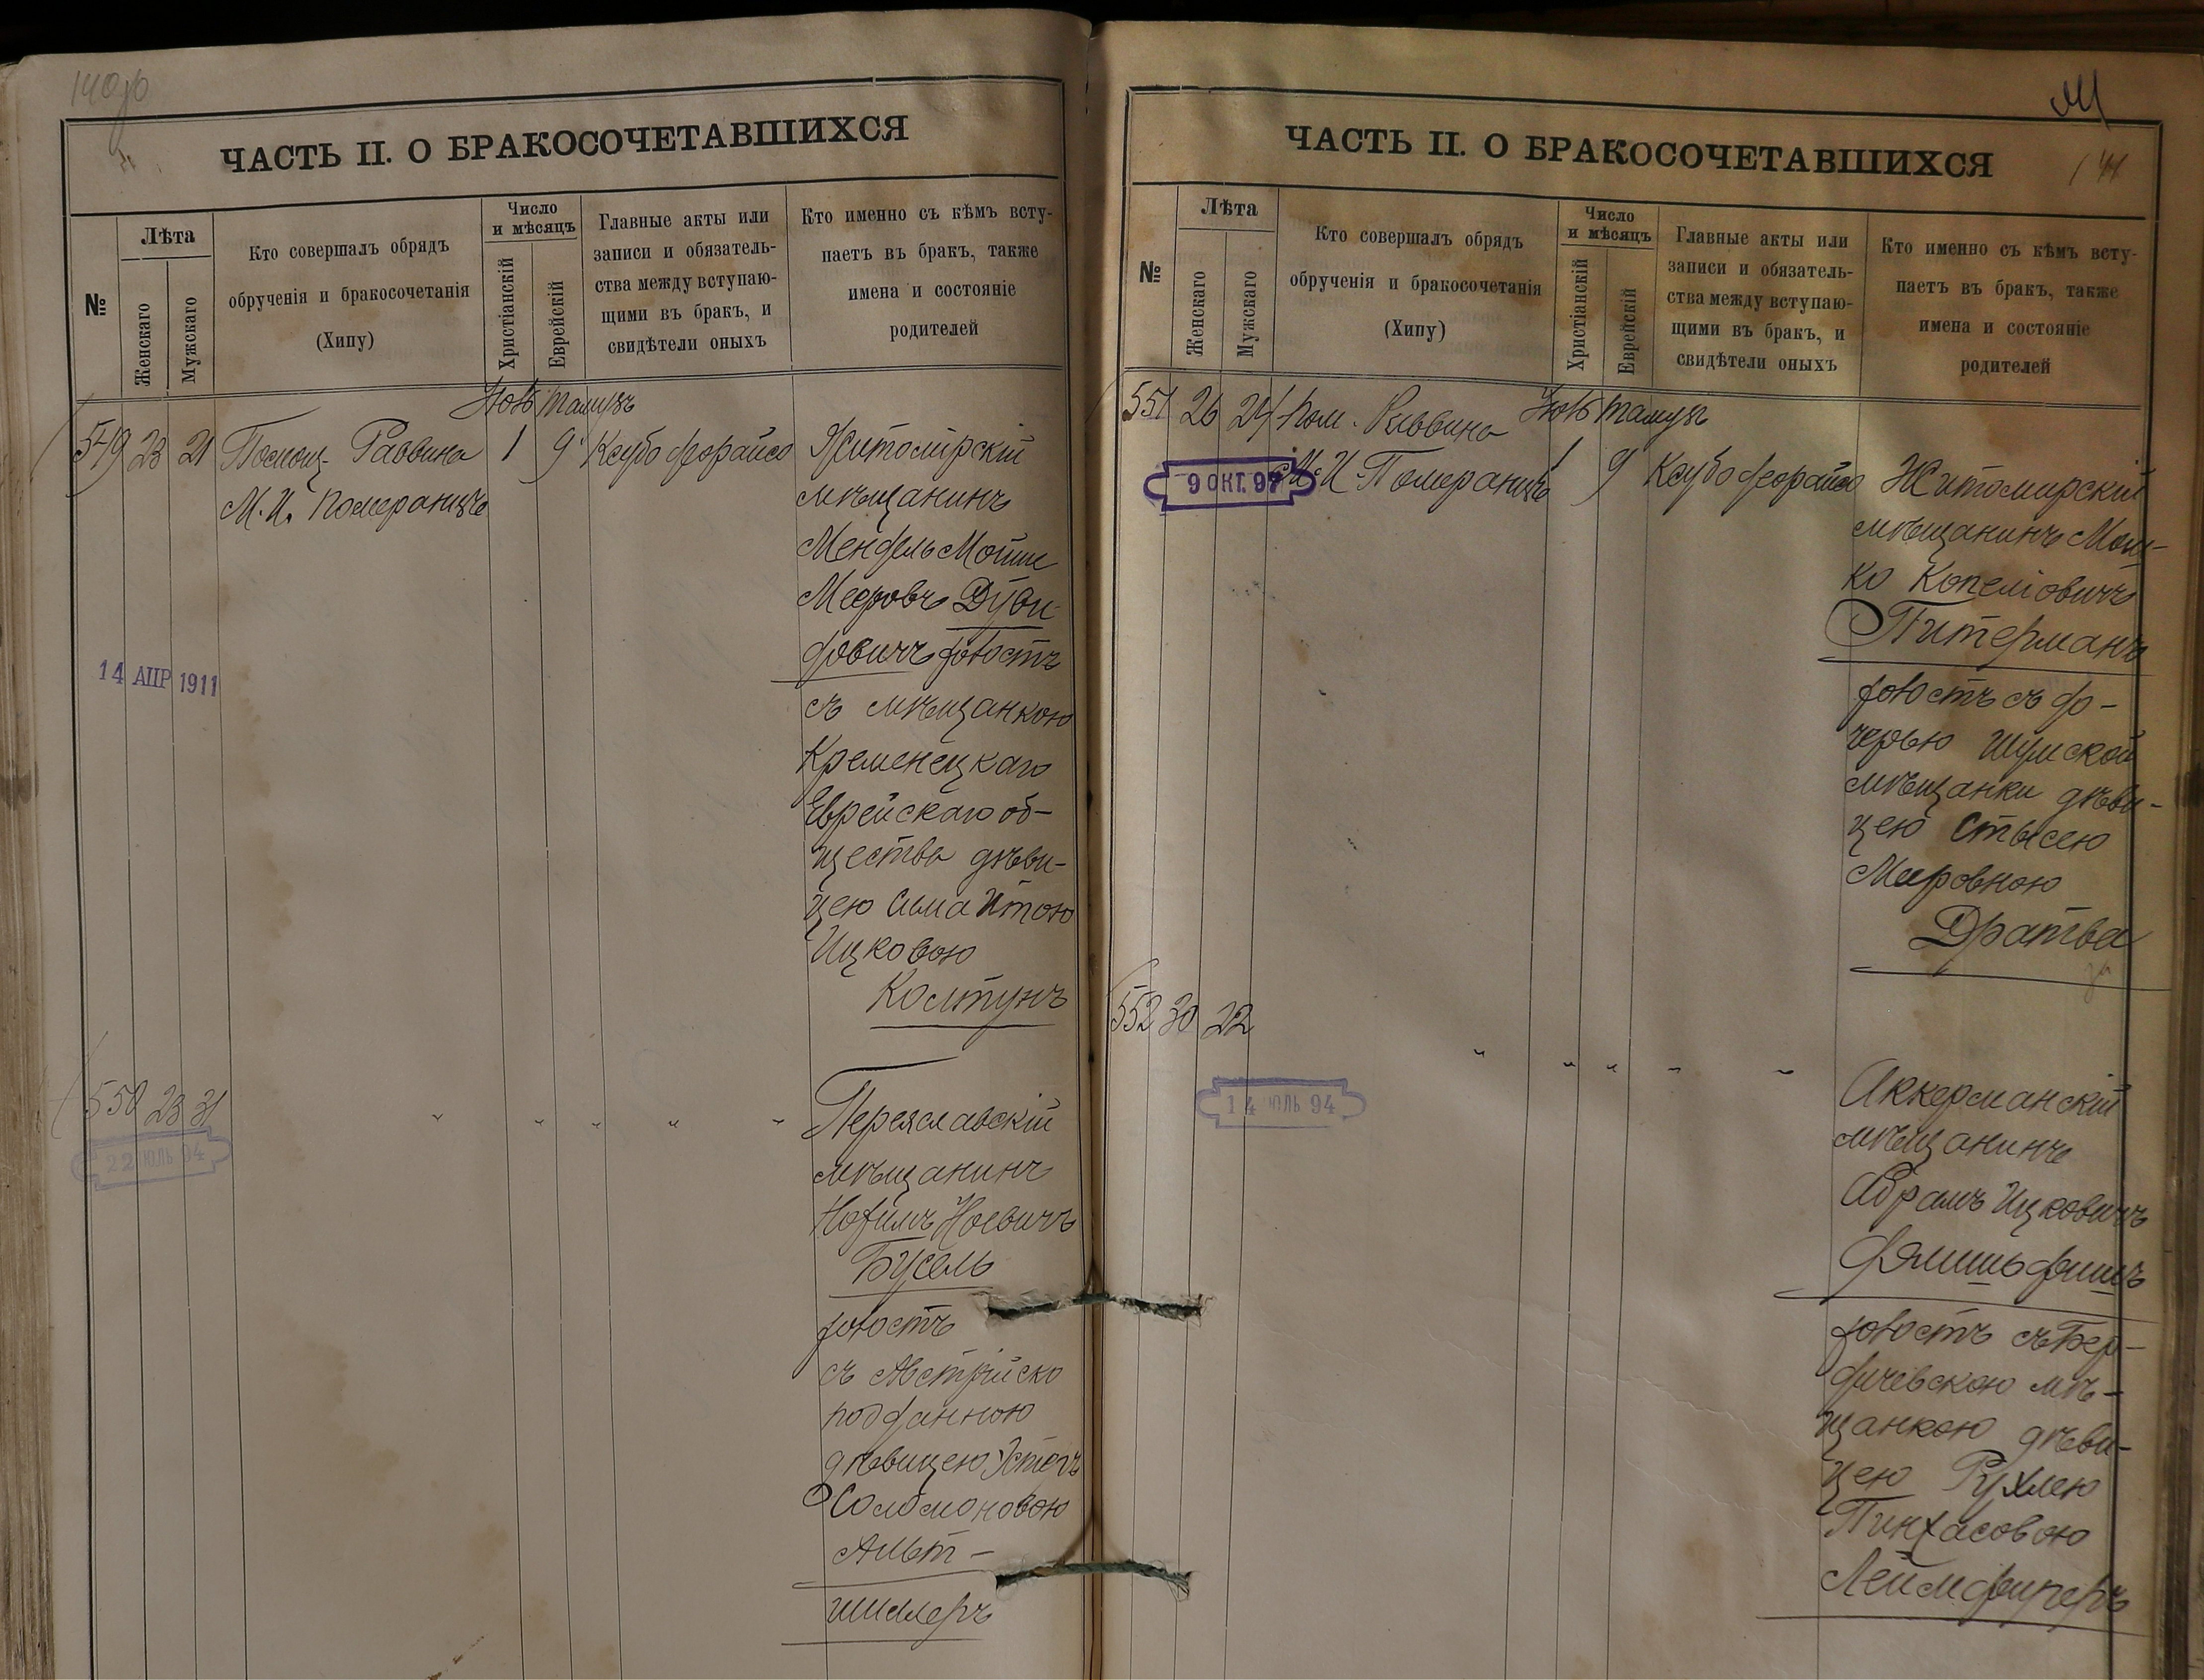 140об
ЧАСТЬ II. О БРАКОСОЧЕТАВШИХСЯ
№
Лѣта
Женскаго
Мужскаго
Кто совершалъ обрядъ
обрученія и бракосочетанія
(Хипу)
Число
и мѣсяцъ
Христіанскій
Еврейскій
Главные акты или
записи и обязатель-
ства между вступаю-
щими въ бракъ, и
свидѣтели оныхъ
Кто именно съ кѣмъ всту-
паетъ въ бракъ, также
имена и состояніе
родителей
Тамузъ
549 23 21 Помощ. Раввина 1 9 Ксубо
М. И. Померанцъ
Житомірскій
мѣщанинъ
Мендель Мошко
Мееровъ Дуви-
довичъ холостъ
съ мѣщанкою
Кременецкаго
Еврейскаго об-
щества дѣви-
цею Сима Итою
Ицковою
Колтунъ
14 АПР 1911
550 23 31 " " " " "
22 ЮЛЬ 94
Переяславскій
мѣщанинъ
Нохимъ Ноевичъ
Бусель
холостъ
съ Австрійско
подданною
дѣвицею Эстеръ
Соломоновою
Альт-
шиллеръ
141
ЧАСТЬ II. О БРАКОСОЧЕТАВШИХСЯ
№
Лѣта
Женскаго
Мужскаго
Кто совершалъ обрядъ
обрученія и бракосочетанія
(Хипу)
Число
и мѣсяцъ
Христіанскій
Еврейскій
Главные акты или
записи и обязатель-
ства между вступаю-
щими въ бракъ, и
свидѣтели оныхъ
Кто именно съ кѣмъ всту-
паетъ въ бракъ, также
имена и состояніе
родителей
Тамузъ
551 26 24 Пом. Раввина
М. И. Померанцъ 1 9 Ксубо
9 ОКТ. 97
Житомирскій
мѣщанинъ Мош-
ко Копеліовичъ
Питерманъ
холостъ съ до-
черью Шумской
мѣщанки дѣви-
цею Стысею
Мееровною
Дратва
552 30 22 " " " " "
14 ЮЛЬ 94
Аккерманскій
мѣщанинъ
Абрамъ Ицковичъ
холостъ съ Бер-
дичевскою мѣ-
щанкою дѣви-
цею Рухлею
Пинхасовою